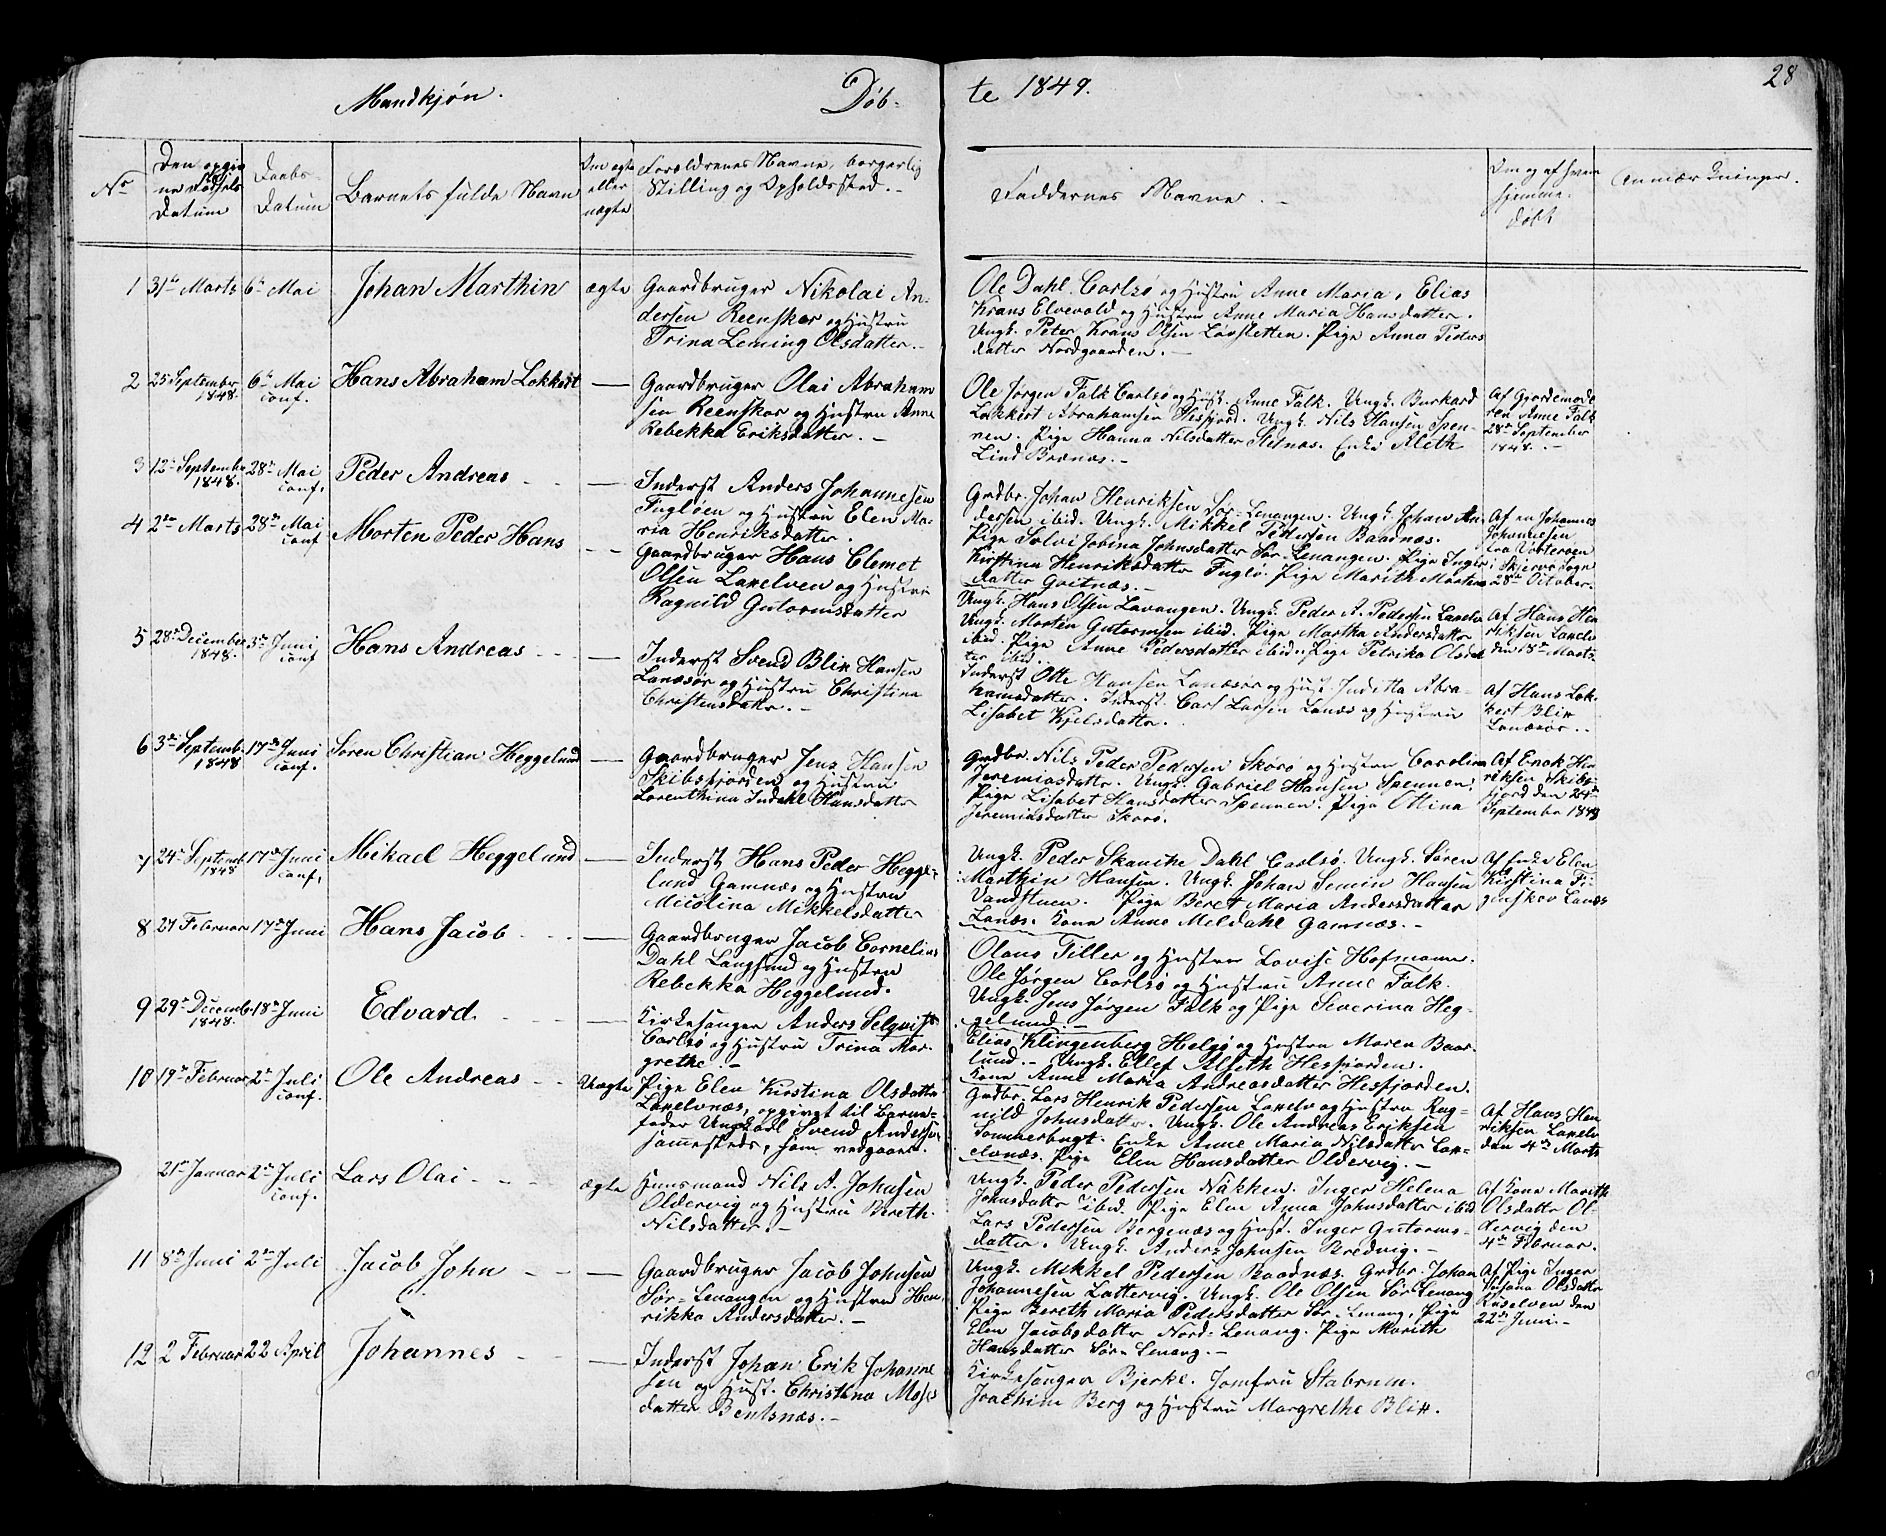 Mandkjøn.
Døb-
te 1849.
28
No
Den opgiv
ne Fødsels
Datum
Daabs-
Datum
Barnets fulde Navn
Om ægte
eller
uægte
Forældrenes Navne, borgerlig
Stilling og Opholdssted.-
Faddernes Navne.-
Om og af hvem
hjemme-
døbt
Anmærkninger.
1 31te Marts 6te Mai Johan Marthin ægte
Gaardbruger Nikolai An-
dersen Reenskar og Hustru
Trina Leming Olsdatter.-
Ole Dahl Carlsø og Hustru Anne Maria, Elias
Krans Elvevold og Hustru Anne Maria Hansdatter.
Ungk. Peter Krans Olsen Løvsletten. Pige Anna Peders
datter Nordgaarden.-
2 25 September 1848. 6te Mai conf. Hans Abraham Lokkert —
Gaardbruger Olai Abraham
sen Reenskar og Hustru Anne
Rebekka Eriksdatter.-
Ole Jørgen Falk Carlsø og Hust. Anne Falk. Ungk. Burkard
Lokkert Abrahamsen Hesfjord. Ungk. Nils Hansen Spen-
nen. Pige Hanna Nilsdatter Stenæs. Enke Aleth
Lind Brænæs.-
Af Gjordemode
ren Anne Falk
28de September
1848.-
3 12te September 1848. 28de Mai conf. Peder Andreas —
Inderst Anders Johannesen
Fugløen og Hustru Elen Ma-
ria Henriksdatter.
Grdbr. Johan Henriksen Sør-Lenangen. Ungk. Johan An-
dersen ibid. Ungk. Mikkel Pedersen Baadnæs.
Pige Sølvi Jobina Johnsdatter Sør-Lenangen. Pige Inger
Kirstina Henriksdatter Fuglø. Pige Marith Martins
datter Gritnæs.-
Af en Johannes
Johannesen
fra Vorterøen
i Skjervø Sogn
28de October.
4 2den Marts 28de Mai conf Morten Peder Hans —
Gaardbruger Hans Clemet
Olsen Lanelven og Hustru
Ragnild Gutormsdatter
Ungk. Hans Olsen Lavangen. Ungk. Peder A. Pedersen Lanelv
Ungk. Morten Gutormsen ibid. Pige Martha Andersdatter
ibid. Pige Anne Pedersdatter ibid. Pige Petrika Olsdat
ter ibid.
Af Hans Hen
riksen Lanelv
den 18de Marts
5 28de December 1848. 3die Juni conf Hans Andreas —
Inderst Svend Blix Hansen
Lanæsør og Hustru Christina
Christensdatter.-
Inderst Otte Hansen Lanæsør og Hust. Inditta Abra-
hamsdatter. Inderst Carl Larsen Lanæs og Hustru
Lisabet Kjelsdatter.
Af Hans Lok-
kert Blix
Lanæsør.
6 3die Septemb. 1848 17de Juni conf. Søren Christian Heggelund —
Gaardbruger Jens Hansen
Skibsfjorden og Hustru
Lorenthina Indahl Hansdatter
Grdbr. Nils Peder Pedersen Skorø og Hustru Carolina
Jeremiasdatter. Ungk. Gabriel Hansen Spennen.
Pige Lisabet Hansdatter Spennen. Pige Ottina
Jeremiasdatter Skorø.
Af Enok Hen
riksen Skibs-
fjord den 24de
September 1848
7 24de Septemb 1848 17de Juni conf. Mikael Heggelund —
Inderst Hans Peder Hegge-
lund Gamnæs og Hustru
Nicolina Mikkelsdatter
Ungk. Peder Skanche Dahl Carlsø. Ungk. Søren
Marthin Hansen. Ungk. Johan Semin Hansen
Vandstuen. Pige Beret Maria Andersdatter
Lanæs. Kone Anne Meldahl Gamnæs.-
Af Enke Elen
Kirstina Fi-
genskov Lanæs
8 27 Februar 17de Juni Hans Jacob —
Gaardbruger Jacob Cornelius
Dahl Langsund og Hustru
Rebekka Heggelund.
Olaus Tiller og Hustru Lovise Hofmann.
Ole Jørgen Carlsø og Hustru Anne Falk.
Ungk. Jens Jørgen Falk og Pige Severina Heg-
gelund.-
9 29de Decemb. 1848. 18de Juni Edvard. —
Kirkesanger Anders Selqvist
Carlsø og Hustru Trina Mar-
grethe.-
Elias Klingenberg Helgø og Hustru Maren Baar-
lund.- Ungk. Ellef Alfeth Hesfjorden.
Kone Anne Maria Andreasdatter Hesfjorden.
10 19de Februar 2den Juli conf. Ole Andreas — Uægte
Pige Elen Kirstina Olsdatter
Lanelvnæs, opgivet til Barne-
fader Ungkarl Svend Andersen
sammesteds, som vedgaaer.
Grdbr. Lars Henrik Pedersen Lanelv og Hustru Rag-
nild Johnsdatter. Ungk. Ole Andreas Eriksen
Sommerbugt. Enke Anne Maria Nilsdatter Lan-
elvnæs. Pige Elen Hansdatter Oldervig.-
Af Hans Hen
riksen Lanelv
den 4de Marts
21de Januar 2den Juli conf. Lars Olai - - - ægte
Huusmand Nils A. Johnsen
Oldervig og Hustru Bereth
Nilsdatter.-
Ungk. Peder Pedersen Nakken. Inger Helena
Johnsdatter ibid. Pige Elen Anna Johnsdatter ibid
Lars Pedersen Bergenæs og Hust. Inger Gutorms-
datter. Ungk. Anders Johnsen Bredvig.-
Af Kone Marith
Olsdatter Ol-
dervig den
4de Februar.
11 8de Juni 2den Juli Jacob John - - —
Gaardbruger Jacob Johnsen
Sør-Lenangen og Hustru Hen-
rikka Andersdatter.-
Ungk. Mikkel Pedersen Baadnæs. Grdbr. Johan
Johannesen Lattervig. Ungk. Ole Olsen Sør Lenang
Pige Bereth Maria Pedersdatter Sør-Lenang, Pige
Elen Jacobsdatter Nord-Lenang. Pige Marith
Hansdatter Sør-Lenang.-
Af Pige Inger
Susana Olsdatter
Kuselven den
22de Juni.-
12 2 Februar 22 April Johannes - —
Inderst Johan Erik Johanne
sen og Hust. Christina Mose
datter Bentsnæs.-
Kirkesanger Bjerke. Jomfru Stabrum.
Joachim Berg og Hustru Margrethe Blix.